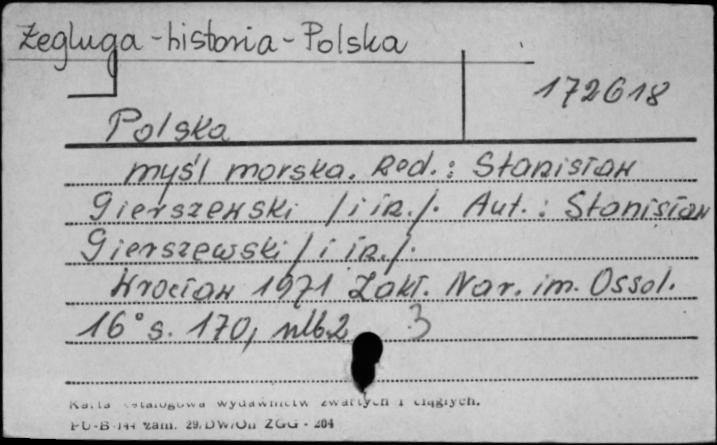 Żegluga - historia - Polska
172618
Polska
myśl morska. Red.: Stanisław
Gierszewski /i in./. Aut.: Stanisław
Gierszewski /i in./.
Wrocław 1971 Zakł. Nar. im. Ossol.
16° s. 170, nlb. 2 3
Karta katalogowa wydawnictw zwartych i ciągłych.
PU-B-144 zam. 29/DW/On ZGG - 204